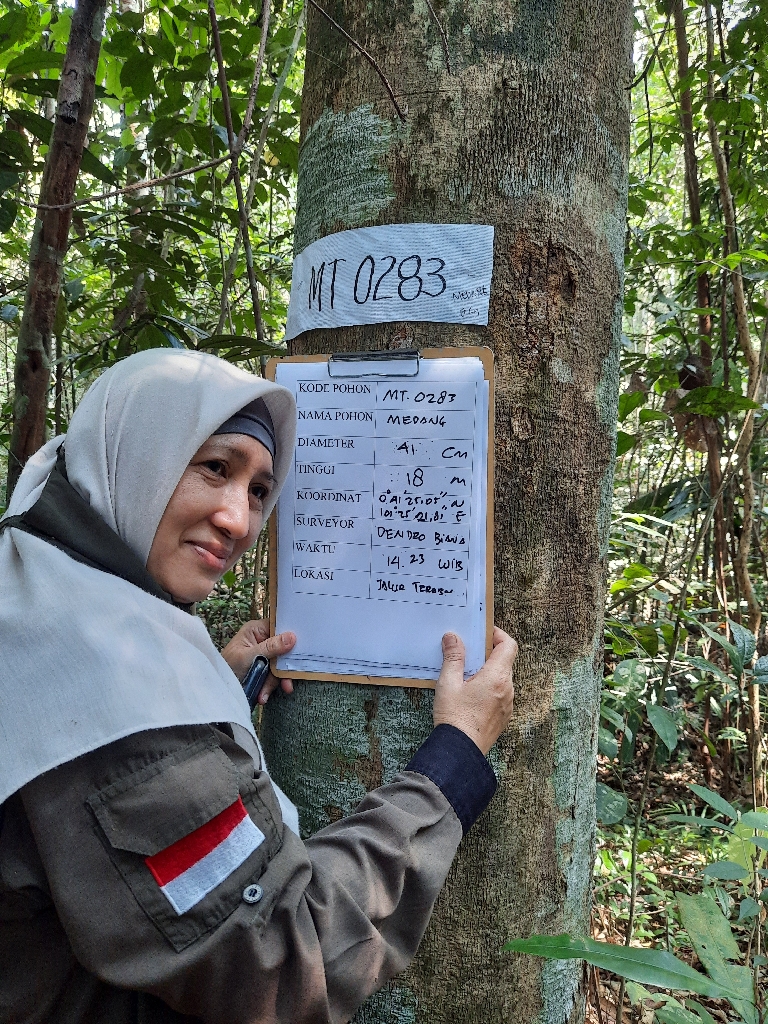 MT 0283
KODE POHON MT. 0283
NAMA POHON MEDANG
DIAMETER 41 CM
TINGGI 18 M
KOORDINAT 0° 41' 25,05" N
101° 25' 21,81" E
SURVEYOR DENDRO
WAKTU 14.23 WIB
LOKASI JALUR